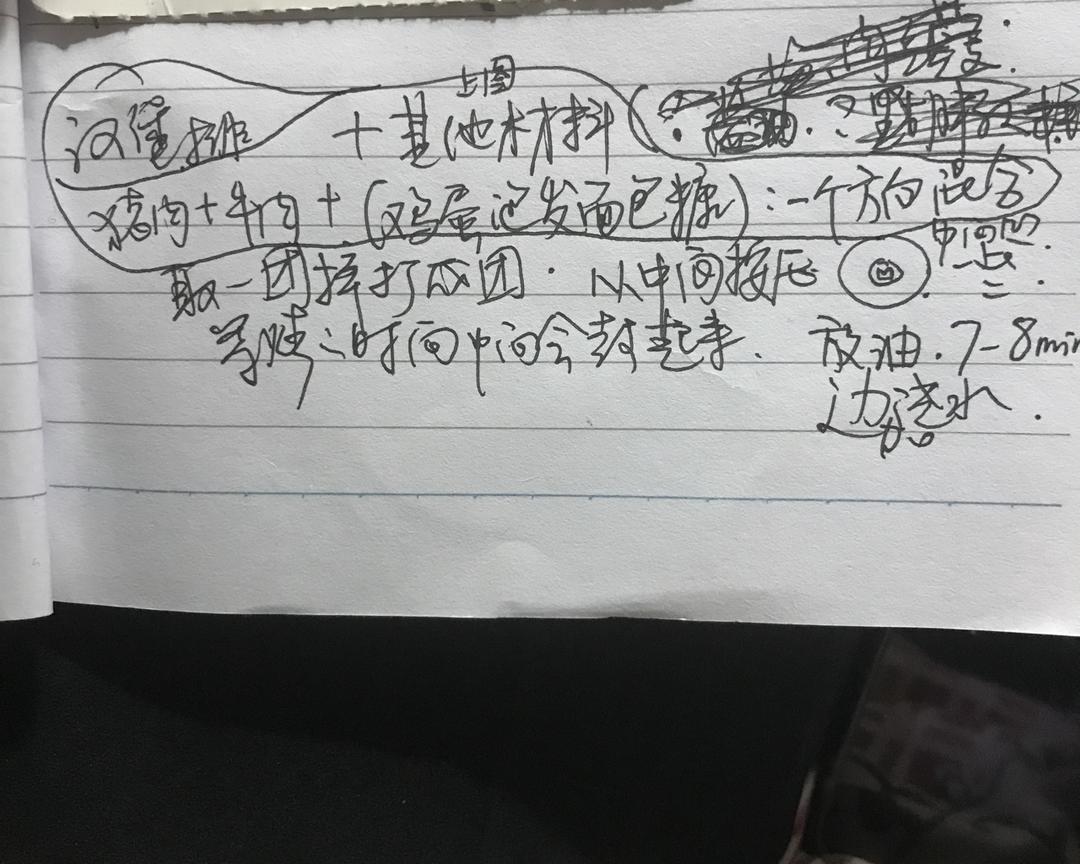 上图
汉堡排 + 其他材料
猪肉+牛肉+(鸡蛋泡发面包糠):一个方向混合
取一团摔打成团.从中间按压 中间凹一点.
等烤的时间中间会封起来. 放油.7-8min
边浇水.